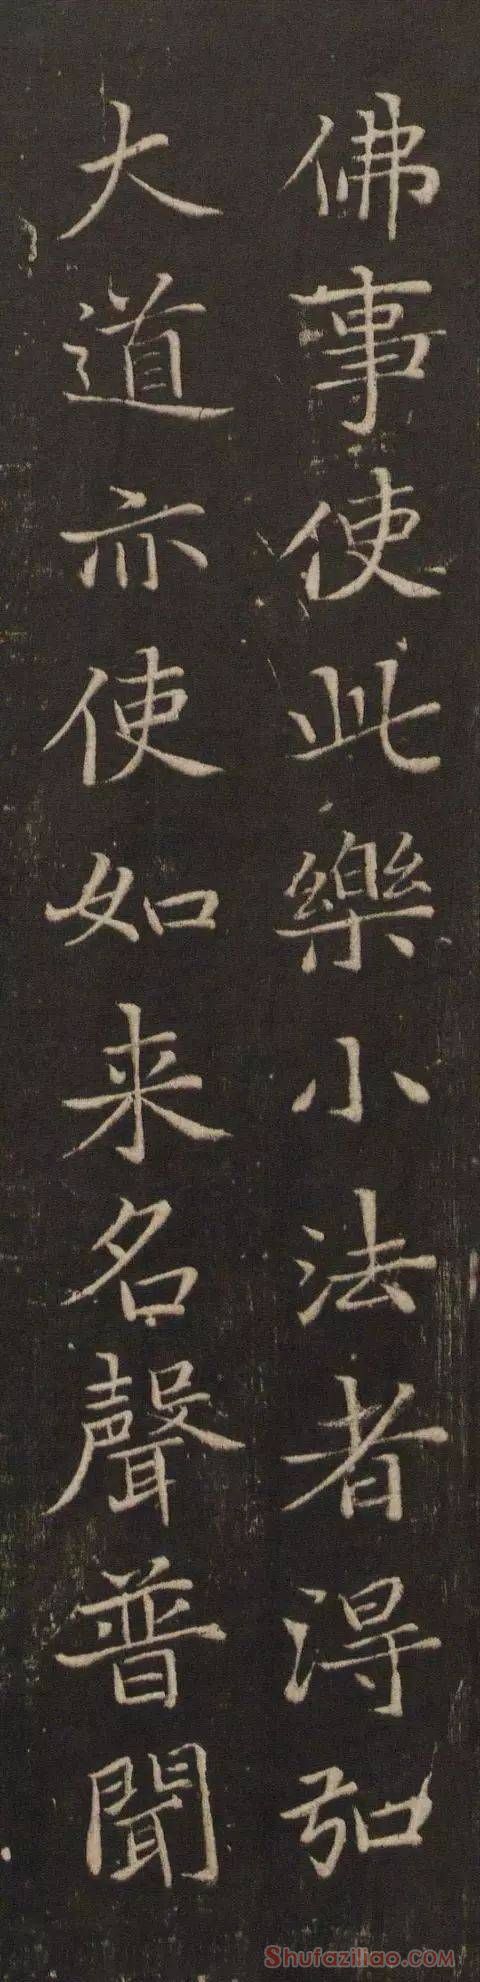 佛事使此樂小法者得弘
大道亦使如来名聲普聞
Shufaziliao.com